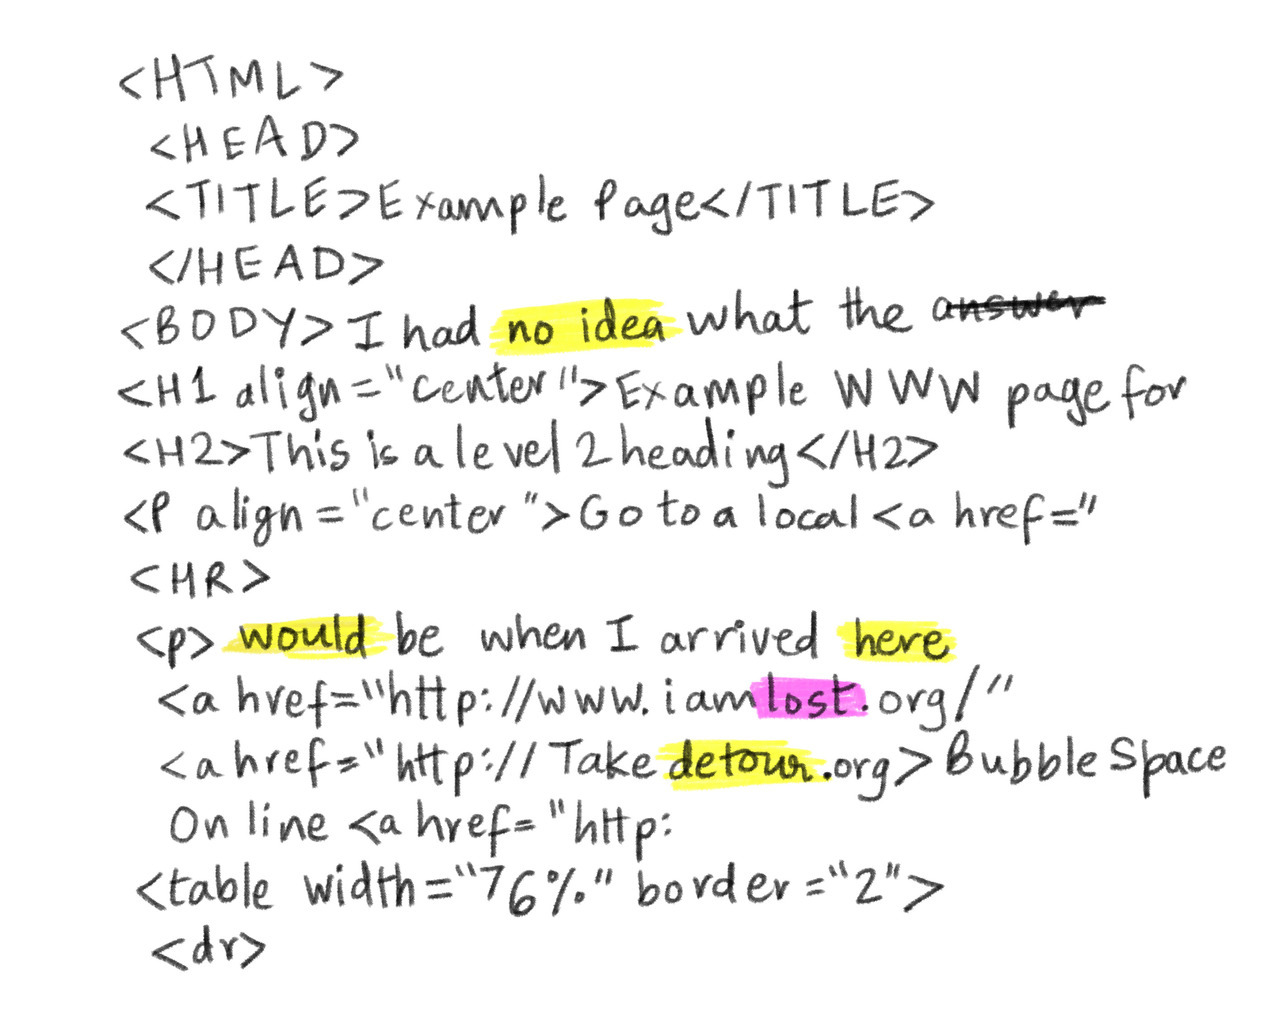 <HTML>
<HEAD>
<TITLE>Example Page</TITLE>
</HEAD>
<BODY> I had no idea what the answer
<H1 align="center">Example WWW page for
<H2>This is a level 2 heading</H2>
<P align="center">Go to a local <a href="
<HR>
<p> would be when I arrived here
<a href="http://www.iamlost.org/"
<a href="http://Takedetour.org>Bubble Space
On line <a href="http:
<table width="76%" border="2">
<dr>